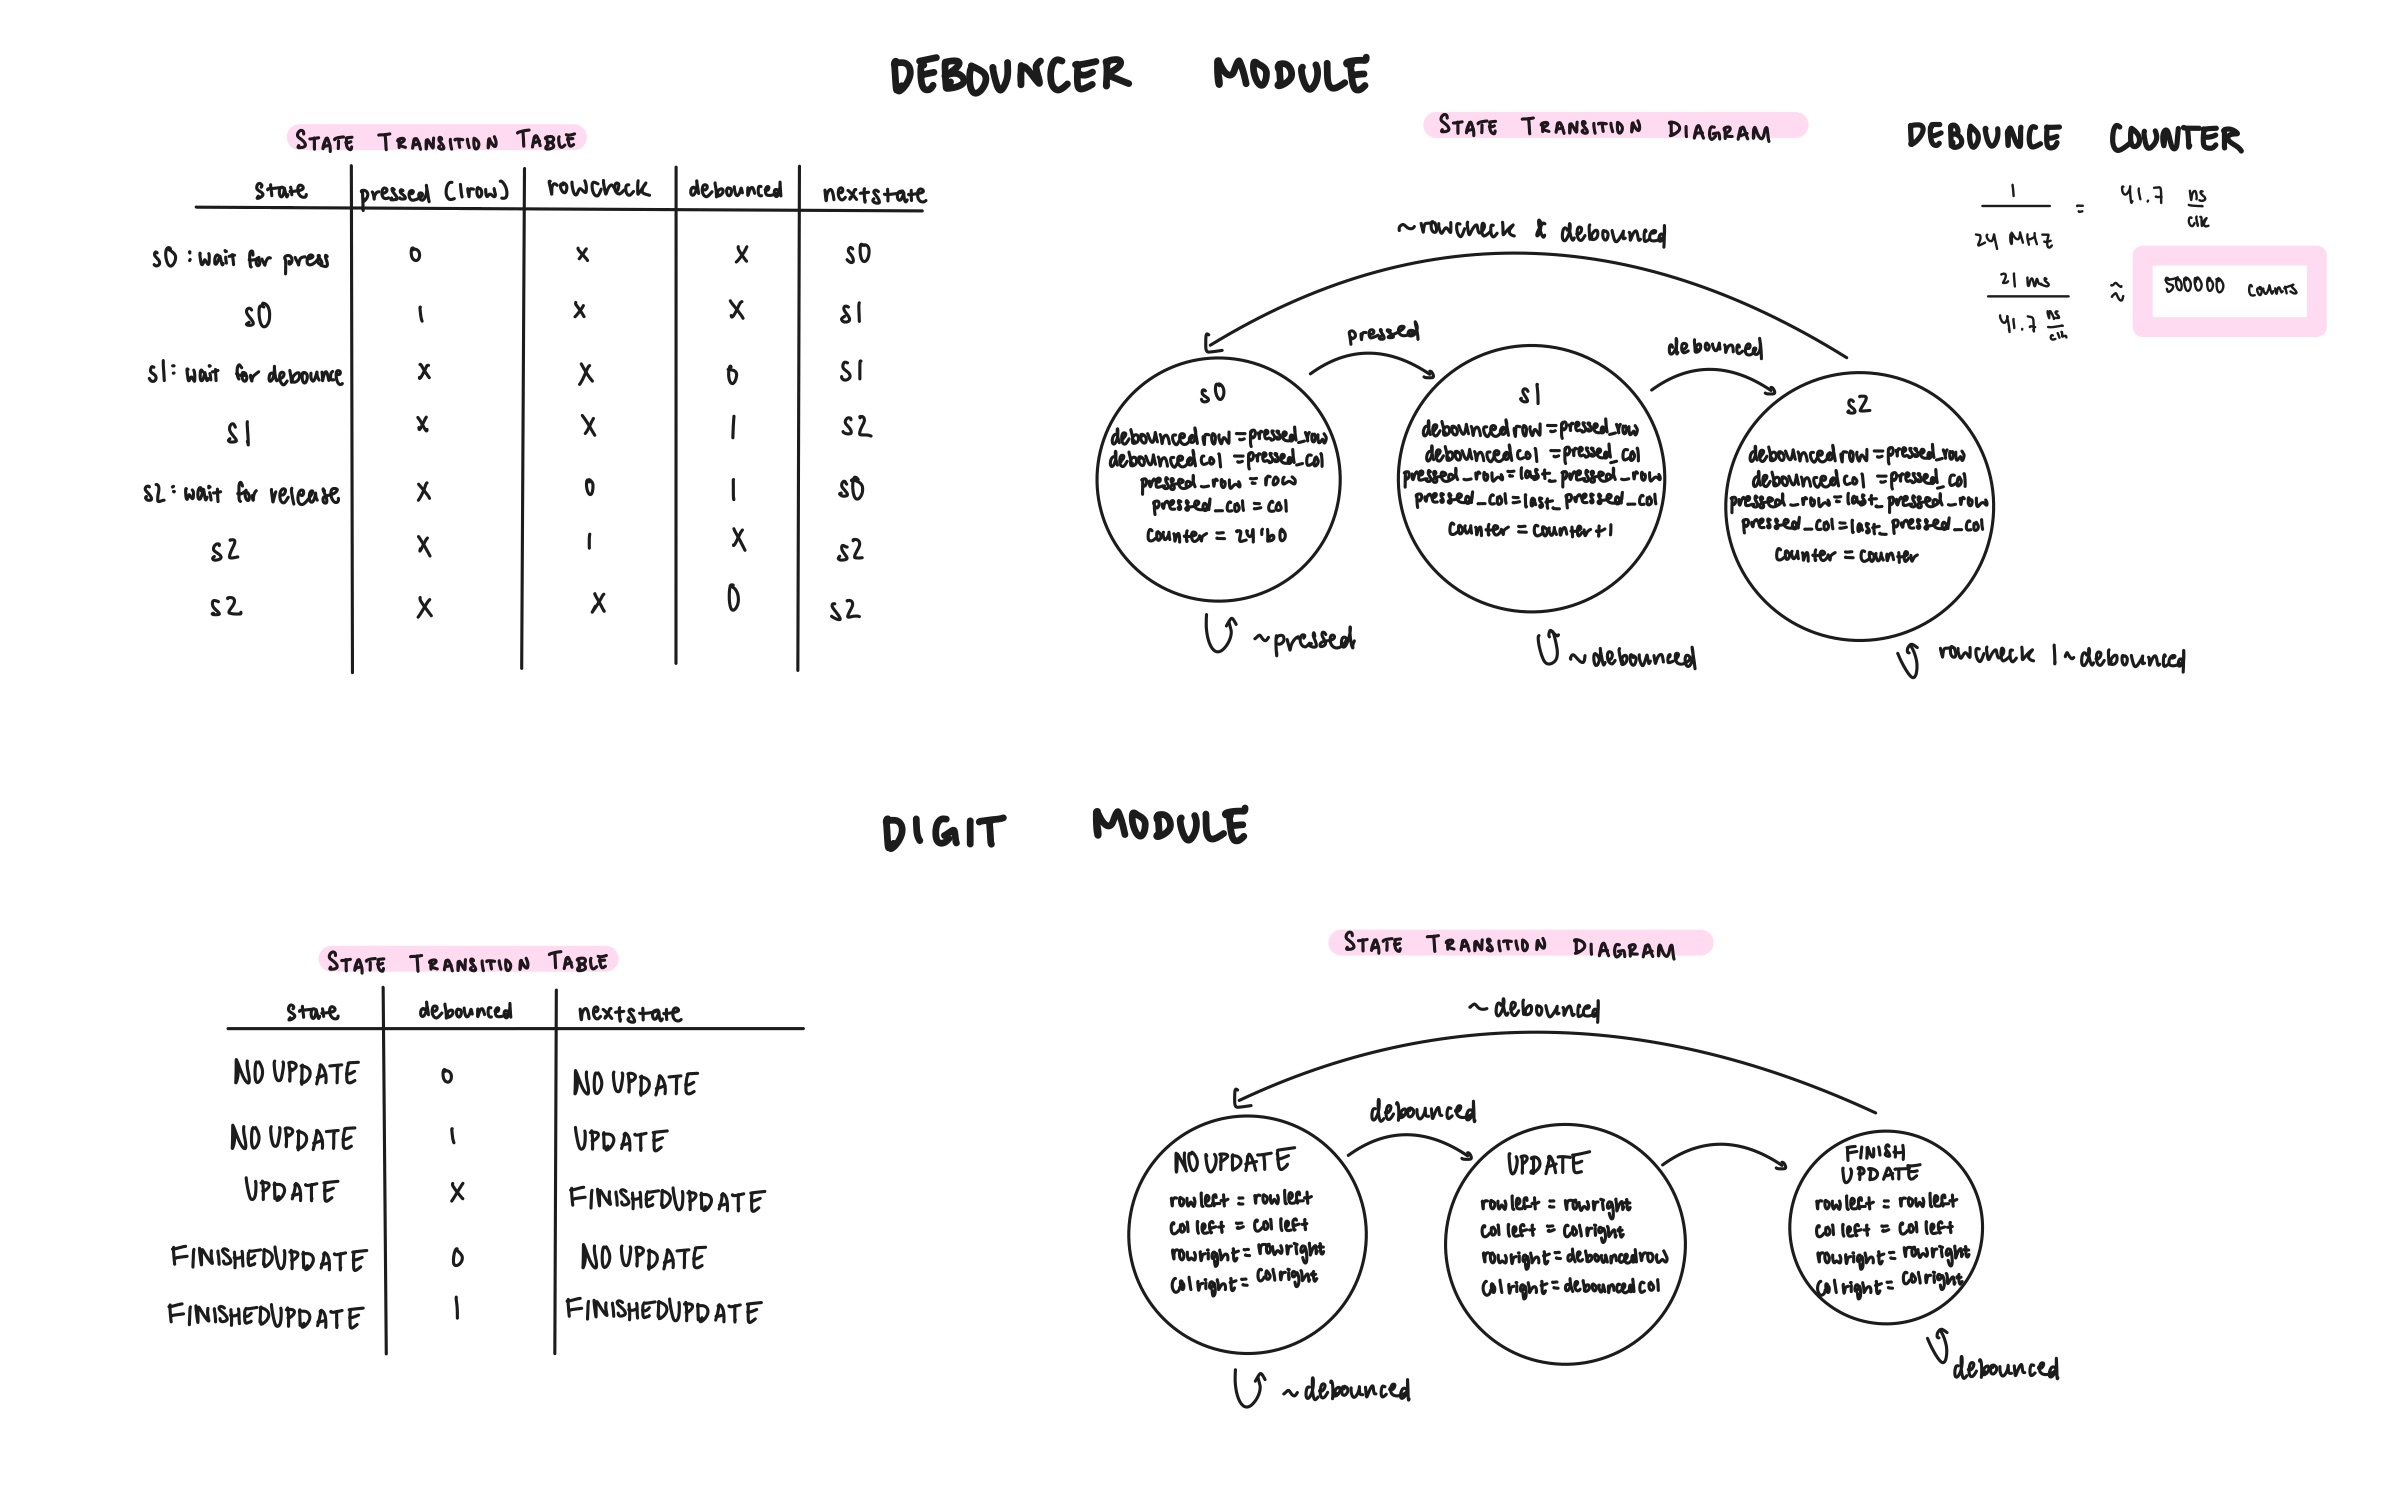 DEBOUNCER MODULE
STATE TRANSITION TABLE
state pressed (|row) rowcheck debounced nextstate
s0 : wait for press 0 x x s0
s0 1 x x s1
s1: wait for debounce x x 0 s1
s1 x x 1 s2
s2: wait for release x 0 1 s0
s2 x 1 x s2
s2 x x 0 s2
STATE TRANSITION DIAGRAM
~rowcheck & debounced
pressed
debounced
s0
debouncedrow = pressed_row
debouncedcol = pressed_col
pressed_row = row
pressed_col = col
counter = 24'b0
~pressed
s1
debouncedrow = pressed_row
debouncedcol = pressed_col
pressed_row = last_pressed_row
pressed_col = last_pressed_col
counter = counter+1
~debounced
s2
debouncedrow = pressed_row
debouncedcol = pressed_col
pressed_row = last_pressed_row
pressed_col = last_pressed_col
counter = counter
rowcheck | ~debounced
DEBOUNCE COUNTER
1 / 24 MHZ = 41.7 ns/clk
21 ms / 41.7 ns/clk ≈ 500000 counts
DIGIT MODULE
STATE TRANSITION TABLE
state debounced nextstate
NOUPDATE 0 NOUPDATE
NOUPDATE 1 UPDATE
UPDATE X FINISHEDUPDATE
FINISHEDUPDATE 0 NOUPDATE
FINISHEDUPDATE 1 FINISHEDUPDATE
STATE TRANSITION DIAGRAM
~debounced
debounced
NOUPDATE
rowleft = rowleft
colleft = colleft
rowright = rowright
colright = colright
~debounced
UPDATE
rowleft = rowright
colleft = colright
rowright = debouncedrow
colright = debouncedcol
FINISH
UPDATE
rowleft = rowleft
colleft = colleft
rowright = rowright
colright = colright
debounced